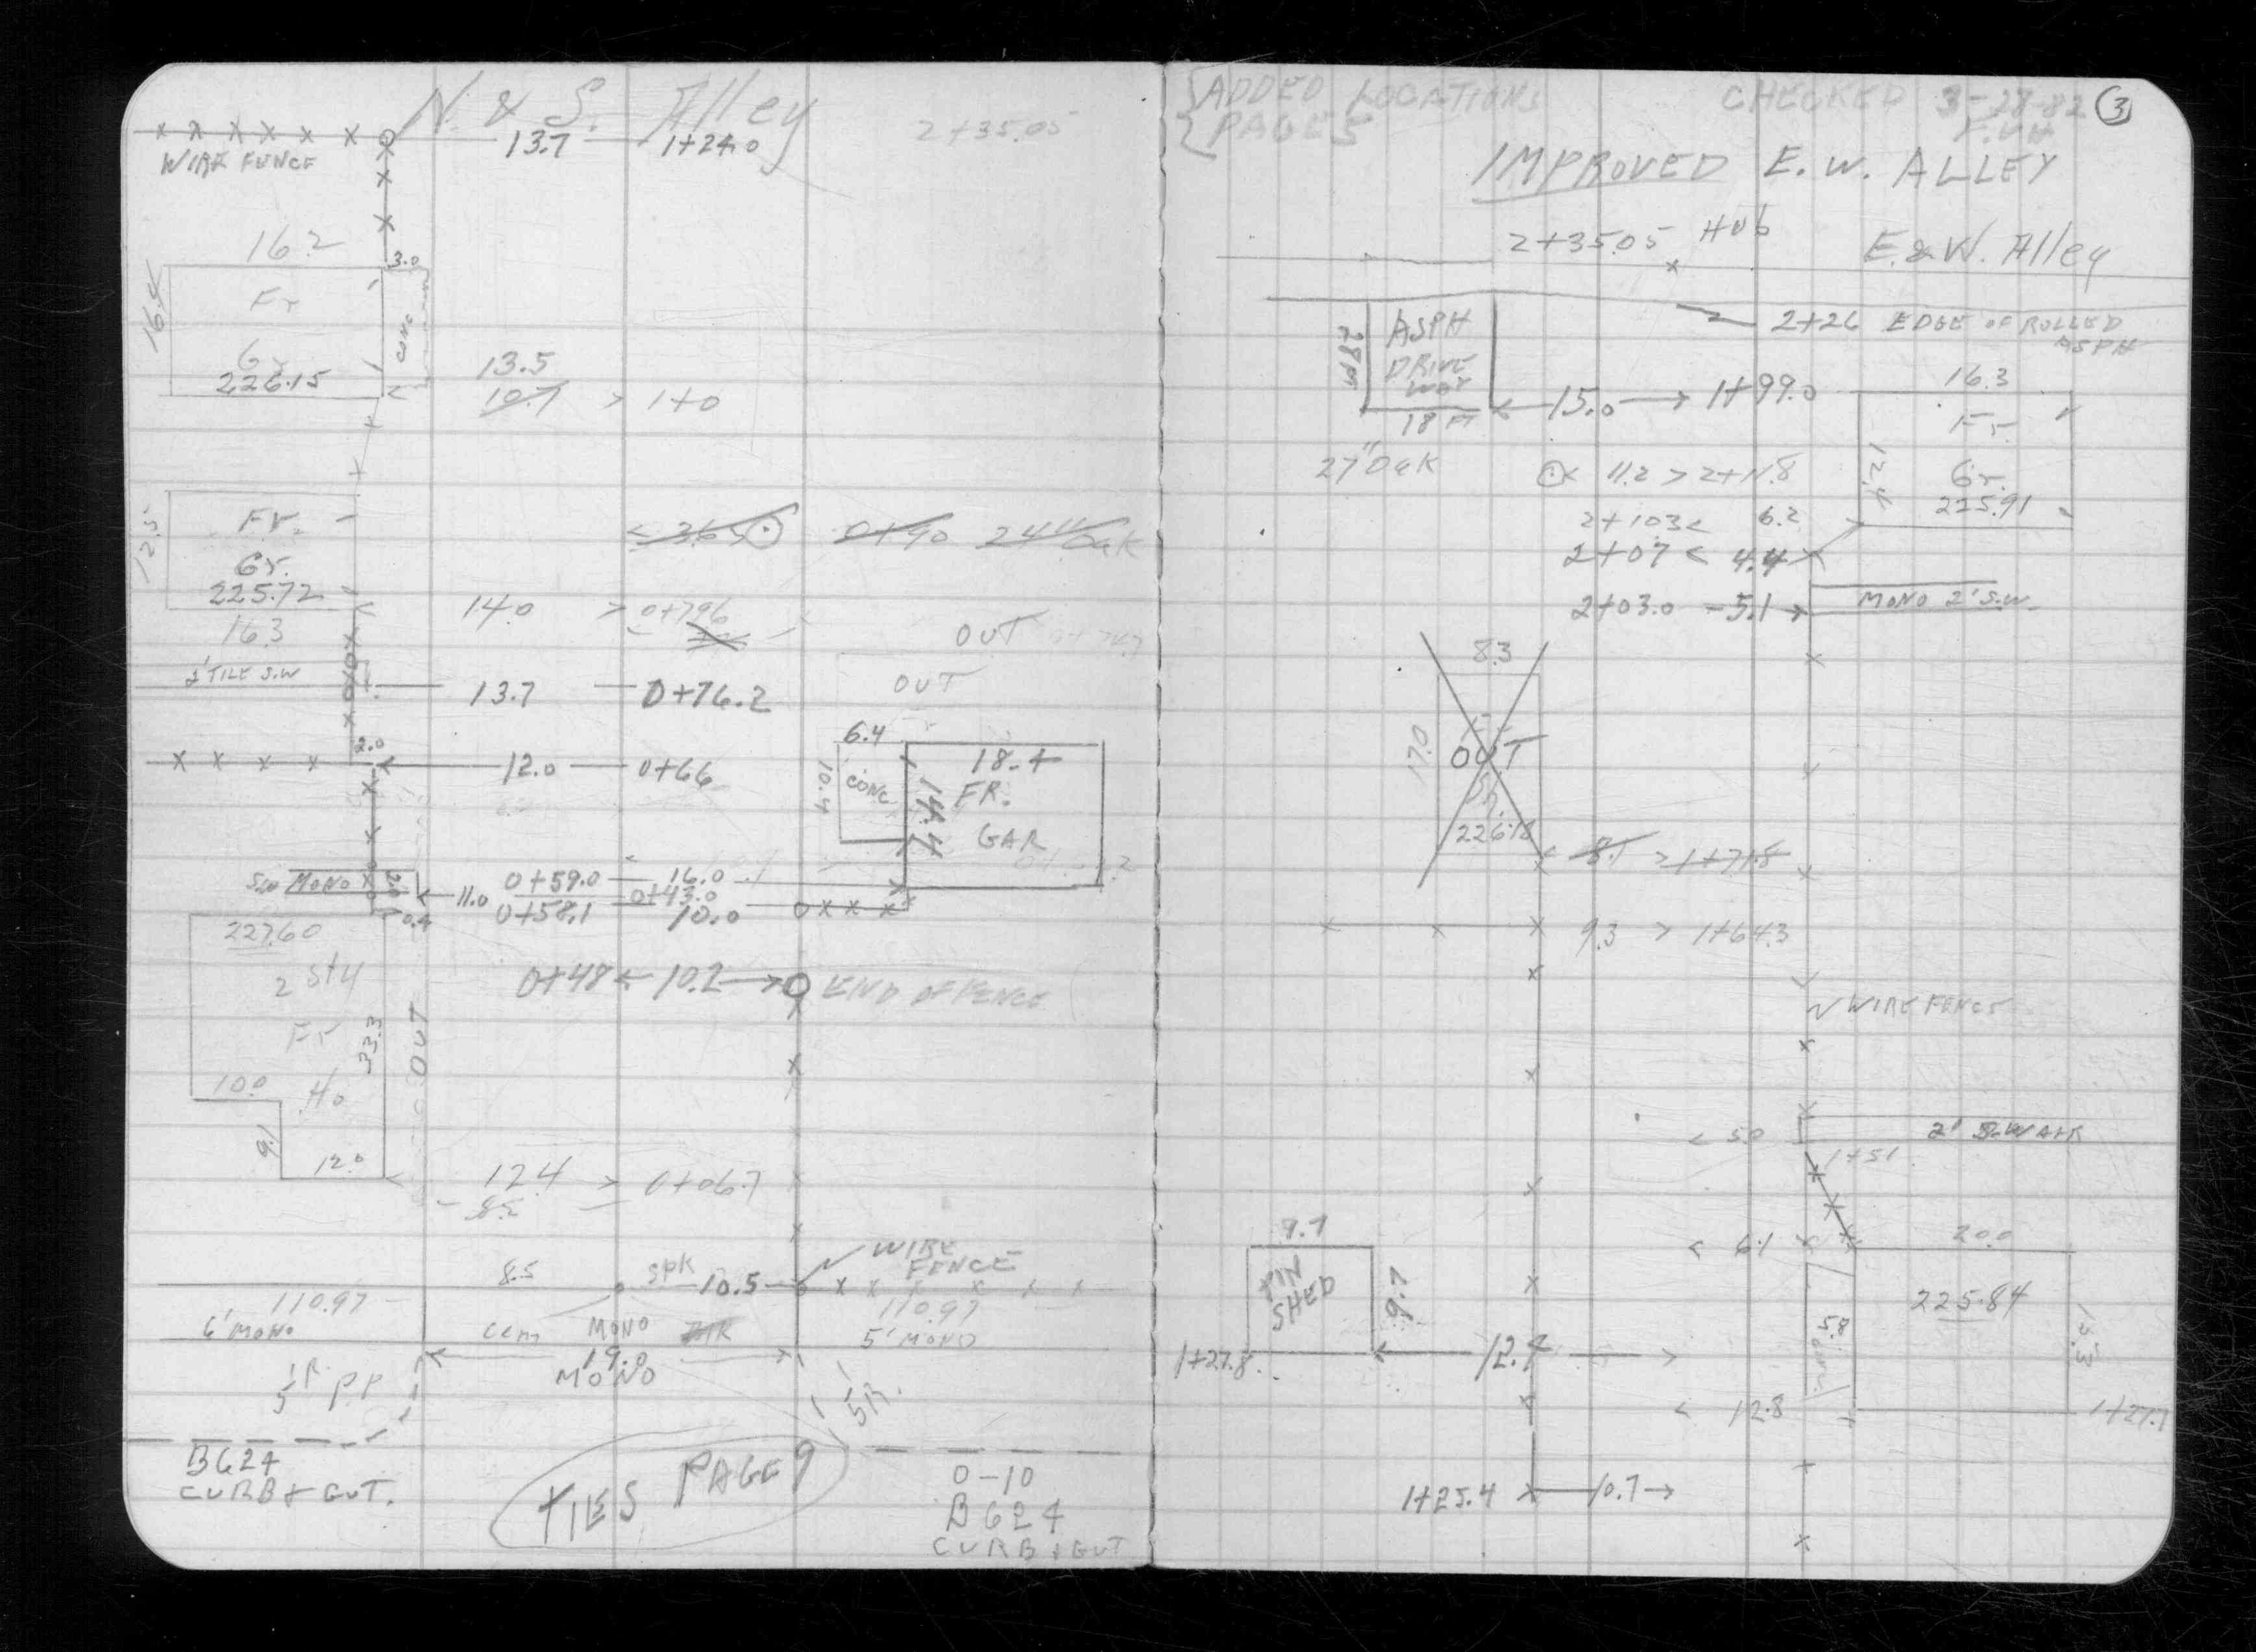 N. & S. Alley
13.7 1+24.0
2+35.05
WIRE FENCE
16.2
3.0
16.4
Fr
CONC
Gr
226.15
13.5
10.7 > 1+0
12.5
Fr.
Gr.
225.72
< 36.5 0+90 24" Oak
14.0 > 0+79.6
16.3
OUT
2' TILE S.W
OUT
13.7 0+76.2
2.0
12.0 0+66
6.4
10.4
CONC
14.4
18.4
FR.
GAR
MONO
11.0
0+59.0 16.0
0+43.0
0+58.1 10.0
0.4
227.60
2 Sty
Fr
Ho
33.3
OUT
0+48 < 10.2 > END OF FENCE
10.0
9.1
12.0
12.4 > 0+06.7
8.5
8.5 SPK 10.5
WIRE
FENCE
110.97
6' MONO
Cem MONO
110.97
5' MONO
19.0
MONO
5R.
B624
CURB & GUT.
TIES PAGE 9
0-10
B624
CURB & GUT
ADDED LOCATIONS
PAGE 5
CHECKED 3-28-82
3
IMPROVED E. W. ALLEY
2+35.05 HUB
E. & W. Alley
2+26 EDGE OF ROLLED
ASPH
ASPH
DRIVE
WAY
18 FT
15.0 1+99.0
16.3
Fr.
Gr.
225.91
27" Oak
11.2 > 2+11.8
2+10.3 < 6.2
2+07 < 4.4
2+03.0 5.1
MONO 2' S.W.
8.3
17.0
OUT
Sh.
226.18
8.1 > 1+71.5
9.3 > 1+64.3
WIRE FENCE
< 5.0
2' S.WALK
1+51
< 6.1
20.0
225.84
13.3
5.8
9.7
TIN
SHED
9.7
1+27.8
12.4
< 12.8
1+27.7
1+25.4 10.7